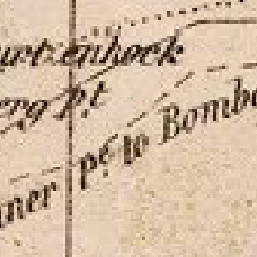 urtzenhoek
erg Pt
ner Pt. to Bombe